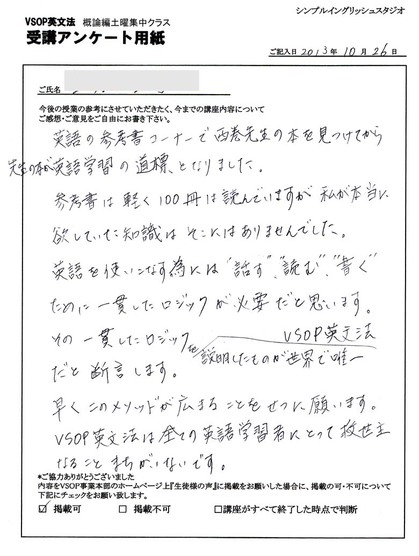 シンプルイングリッシュスタジオ
VSOP英文法 概論編土曜集中クラス
受講アンケート用紙
ご記入日 2013年 10月 26日
ご氏名
今後の授業の参考にさせていただきたく、今までの講座内容について
ご感想・ご意見をご自由にお書き下さい。
英語の参考書コーナーで西巻先生の本を見つけてから
先生の本が英語学習の道標となりました。
参考書は軽く100冊は読んでいますが 私が本当に
欲していた知識は そこにはありませんでした。
英語を使いこなす為には "話す", "読む", "書く"
ために 一貫したロジックが必要だと思います。
その一貫したロジックを説明したものが世界で唯一 VSOP英文法
だと 断言します。
早くこのメソッドが広まることをせつに願います。
VSOP英文法は全ての英語学習者にとって救世主
なること まちがいないです。
*ご協力ありがとうございました
内容をVSOP事業本部のホームページ上『生徒様の声』に掲載をお願いした場合に、掲載の可・不可について
下記にチェックをお願い致します。
☑掲載可 □掲載不可 □講座がすべて終了した時点で判断